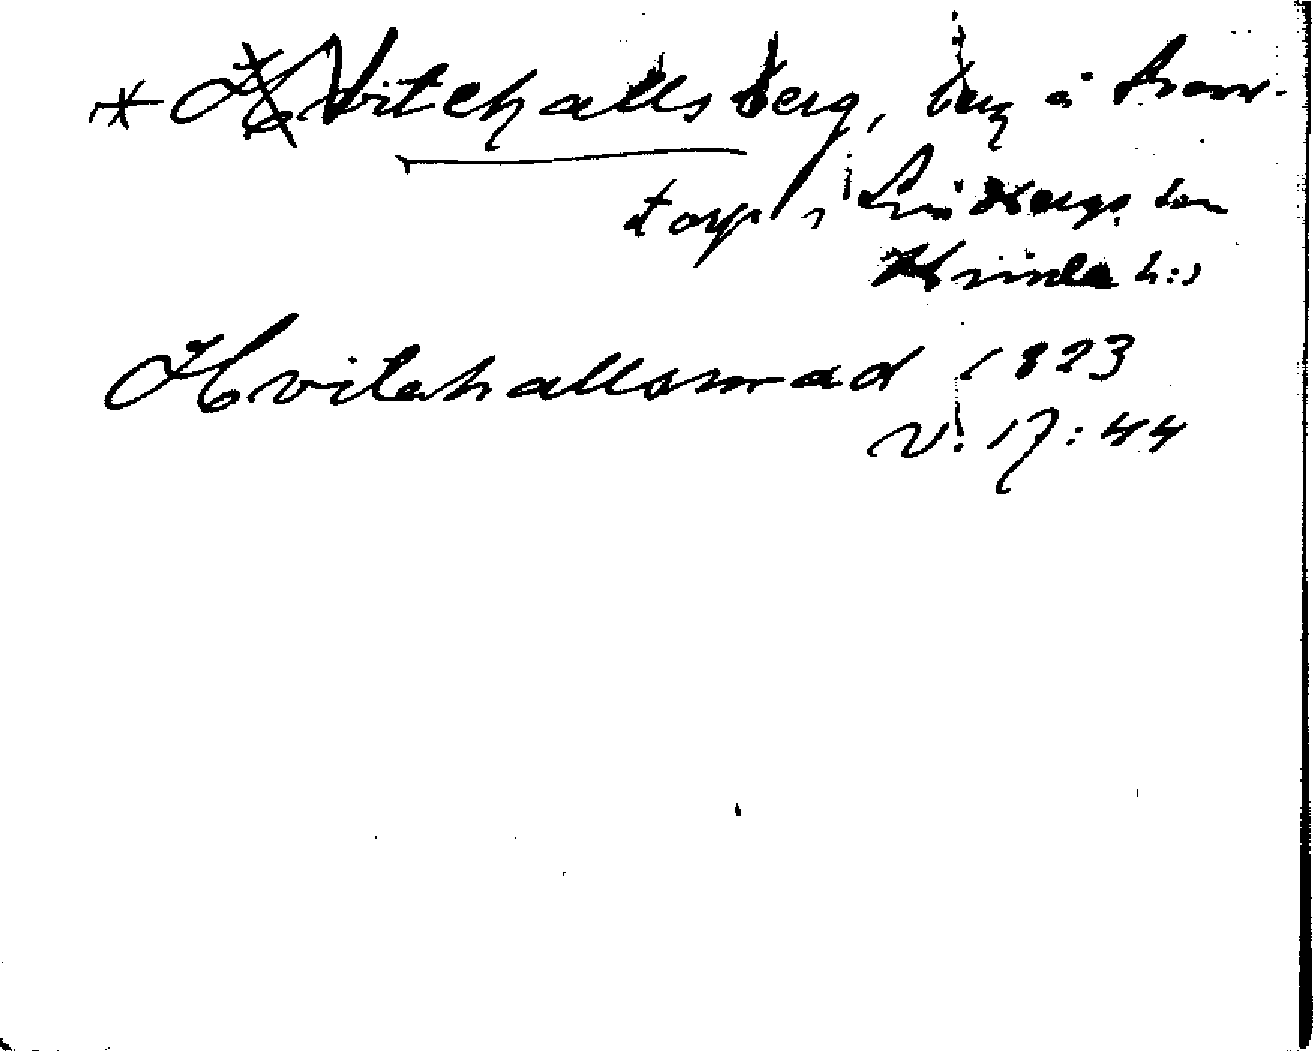 * Vitehallsberg, berg å Tron-
torp i Lindbergs sn
Himle h:s
Hvitehallsmad 1823
V: 17: 44